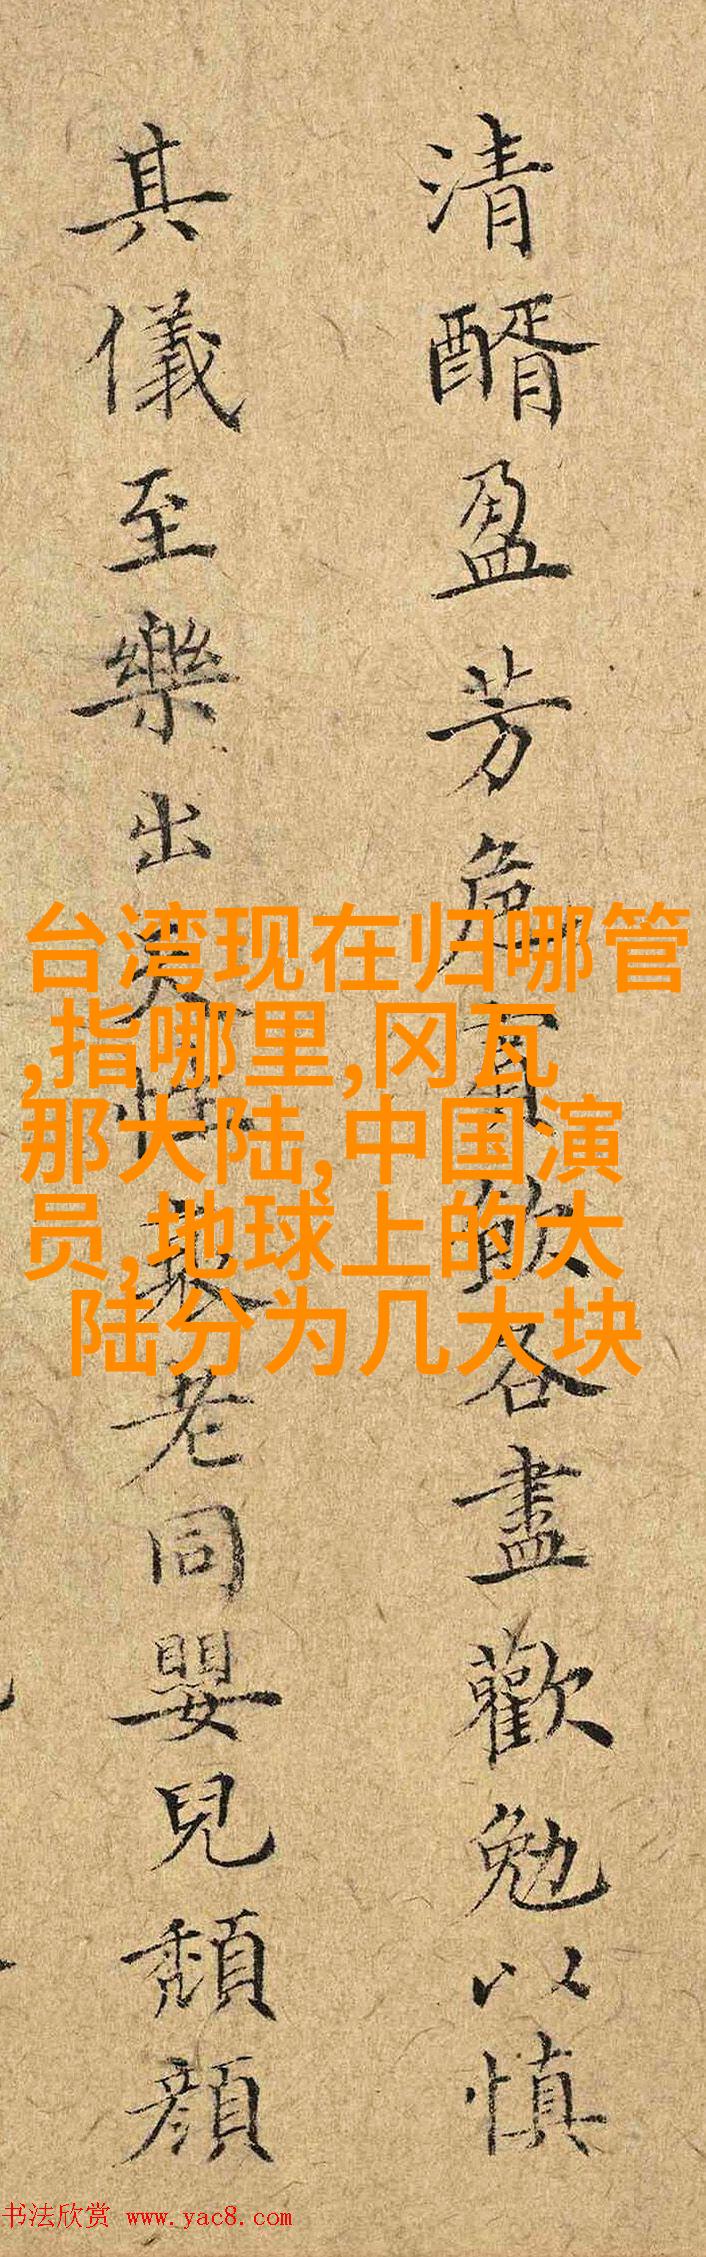 清醑盈芳卮賓飲各盡歡勉以慎
其儀至樂出天性衰老同嬰兒頹顏
台湾现在归哪管
,指哪里,冈瓦
那大陆,中国演
员,地球上的大
陆分为几大块
书法欣赏 www.yac8.com